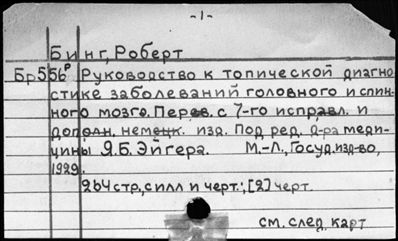 -1-
Бинг, Роберт
Бр556р Руководство к топической диагно-
стике заболеваний головного и спин-
ного мозга. Перев. с 7-го исправл. и
дополн. немецк. изд. Под ред. д-ра меди-
цины Я.Б. Эйгера. М.-Л., Госуд. изд-во,
1929.
264 стр., с илл и черт.; [2] черт.
см. след. карт